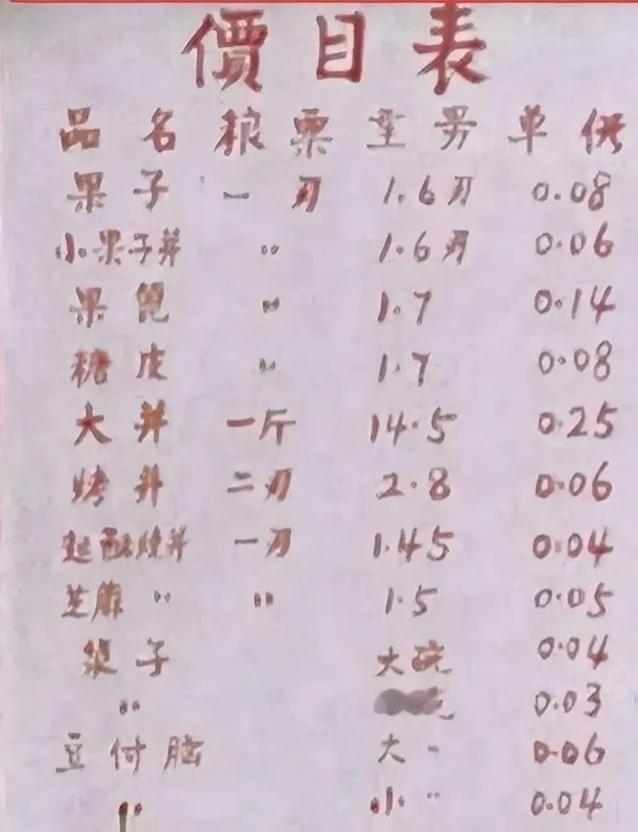 價目表
品名 粮票 重量 单价
果子 一刄 1.6刄 0.08
小果子并 〃 1.6刄 0.06
果篦 〃 1.7 0.14
糖皮 〃 1.7 0.08
大并 一斤 14.5 0.25
烤并 二刄 2.8 0.06
起酥烧并 一刄 1.45 0.04
芝麻 〃 〃 1.5 0.05
浆子 大碗 0.04
〃 0.03
豆付脑 大〃 0.06
〃 小〃 0.04